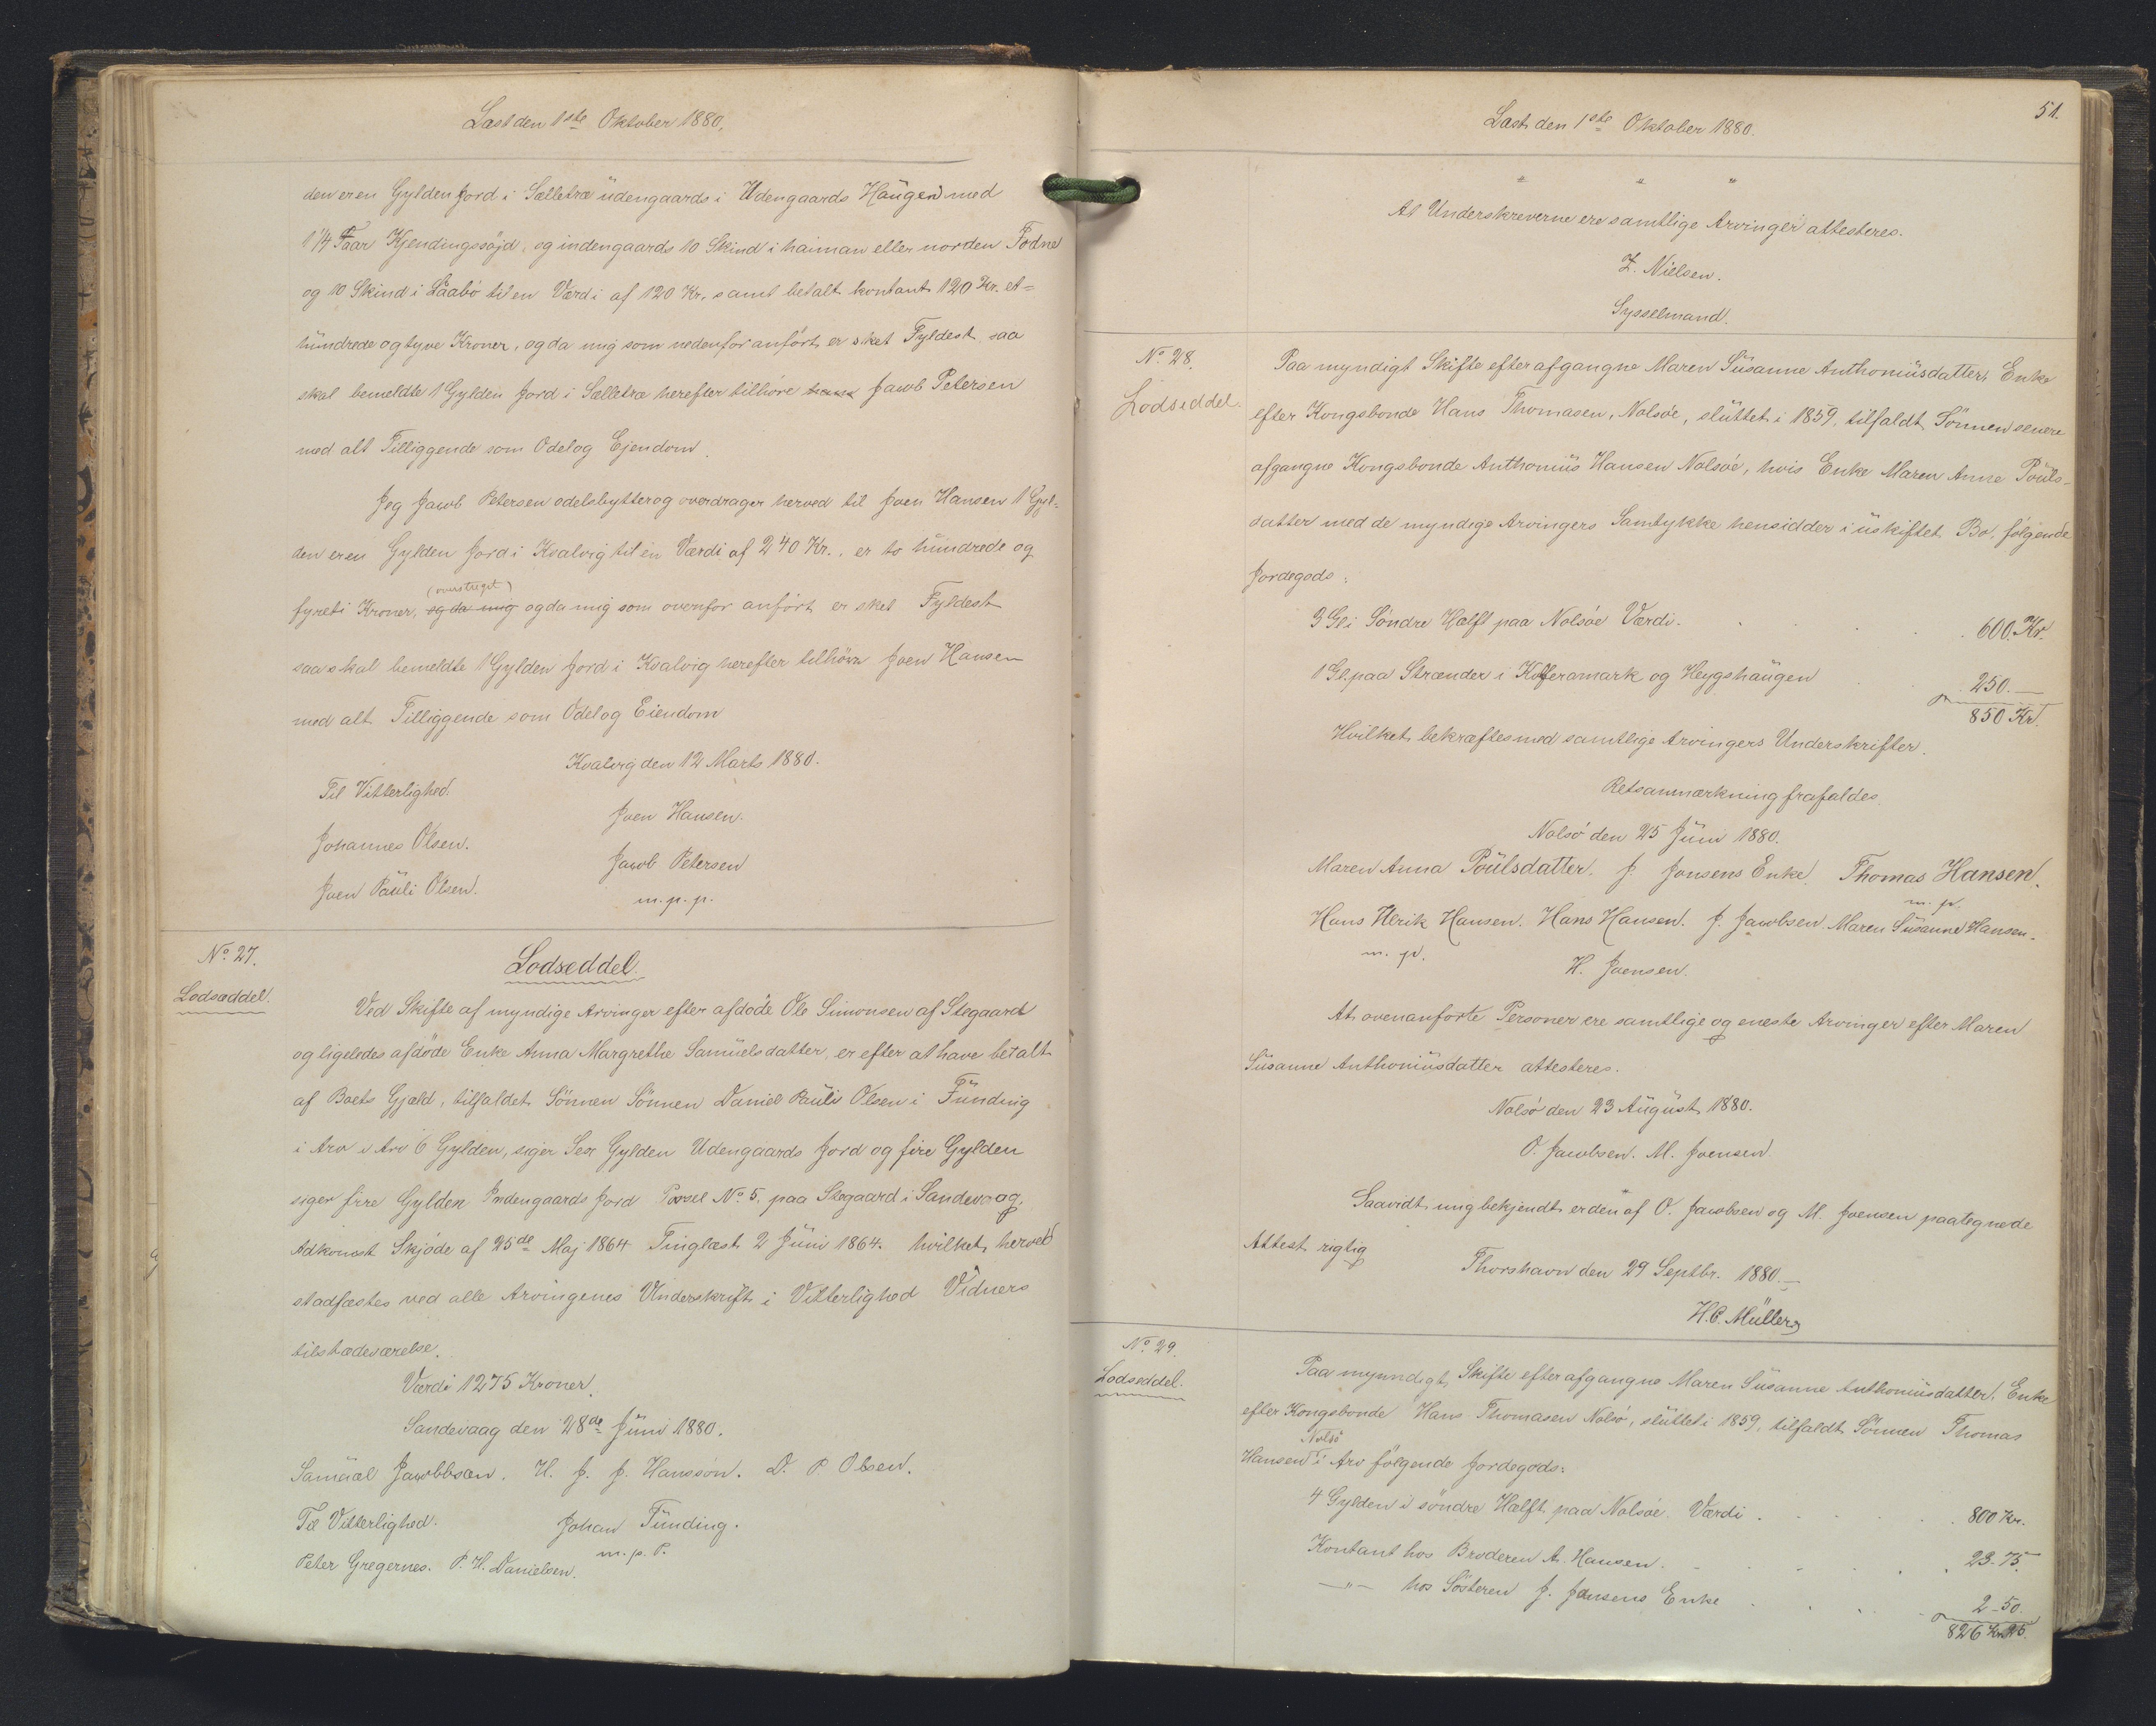 Læst den 1ste Oktober 1880.
den er en Gylden Jord i Sælletræ üdengaards i Udengaards Haügen med
1 1/4 Faar Kjendingssøjd, og indengaards 10 Skind i haiman eller norden Fodne
og 10 Skind i Laabö til en Værdi af 120 Kr. samt betalt kontant 120 Kr. et=
hündrede og tyve Kroner, og da mig som nedenfor anført er sket Fyldest saa
skal bemeldte 1 Gylden Jord i Sælletræ herefter tilhøre Jacob Petersen
med alt Tilliggende som Odel og Ejendom.
Jeg Jacob Petersen odelsbytter og overdrager herved til Joen Hansen 1 Gyl-
den er en Gylden Jord i Kvalvig til en Værdi af 240 Kr., er to hündrede og
(overstreget)
fyreti Kroner, og da mig og da mig som ovenfor anført er sket Fyldest
saa skal bemeldte 1 Gylden Jord i Kvalvig herefter tilhøre Joen Hansen
med alt Tilliggende som Odel og Eiendom
Kvalvig den 12 Marts 1880.
Til Vitterlighed.
Joen Hansen.
Johannes Olsen.
Jacob Petersen
Joen Paüli Olsen.
m. p. p.
No. 27.
Lodseddel.
Lodseddel.
Ved Skifte af myndige Arvinger efter afdöde Ole Simonsen af Stegaard
og ligeledes afdöde Enke Anna Margrethe Samüelsdatter, er efter at have betalt
af Boets Gjæld, tilfaldet Sönnen Sönnen Daniel Paüli Olsen i Fünding
i Arv i Arv 6 Gylden, siger Sex Gylden Udengaards Jord og fire Gylden
siger fire Gylden Indengaards Jord Parsel No. 5. paa Stegaard i Sandevaag.
Adkomst Skjöde af 25de Maj 1864 Tinglæst 2 Jüni 1864. hvilket herved
stadfæstes ved alle Arvingenes Underskrift i Vitterlighed Vidners
tilstædeværelse.
Værdi 1275 Kroner.
Sandevaag den 28de Jüni 1880.
Samüal Jacobbsen. H. J. J. Hanssön. D. P. Olsen.
Til Vitterlighed. Johan Fünding.
m. p. P.
Peter Gregersen. P. H. Danielsen.
51.
Læst den 1ste Oktober 1880.
" " "
At Underskreverne ere samtlige Arvinger attesteres.
Z. Nielsen.
Sysselmand.
No. 28.
Lodseddel.
Paa myndigt Skifte efter afgangne Maren Süsanne Anthoniüsdatter, Enke
efter Kongsbonde Hans Thomasen, Nolsøe, slüttet i 1859, tilfaldt Sönnen senere
afgangne Kongsbonde Anthoniüs Hansen Nolsøe, hvis Enke Maren Anne Poüls-
datter med de myndige Arvingers Samtykke hensidder i üskiftet Bo, følgende
Jordegods:
3 Gl. i Söndre Hælft paa Nolsøe Værdi. 600. Kr.
1 Gl. paa Strænder i Kolferamark og Heygshaügen 250.—
850 Kr.
Hvilket bekræftes med samtlige Arvingers Underskrifter.
Retsanmærkning frafaldes.
Nolsö den 25 Jüni 1880.
Maren Anna Poülsdatter. J. Jonsens Enke. Thomas Hansen.
m. p.
Hans Ulrik Hansen. Hans Hansen. J. Jacobsen. Maren Süsanne Hansen.
m. p.
H. Joensen.
At ovenanforte Personer ere samtlige og eneste Arvinger efter Maren
Süsanne Anthoniüsdatter attesteres.
Nolsö den 23 Aügüst 1880.
O. Jacobsen. M. Joensen.
Saavidt mig bekjendt er den af O. Jacobsen og M. Joensen paategnede
Attest rigtig
Thorshavn den 29 Septbr. 1880.—
H. C. Müller
No. 29.
Lodseddel.
Paa mynndigt Skifte efter afgangne Maren Süsanne Anthoniüsdatter, Enke
efter Kongsbonde Hans Thomasen Nolsö, slüttet i 1859, tilfaldt Sönnen Thomas
Nolsö
Hansen i Arv følgende Jordegods:
4 Gylden i söndre Hælft paa Nolsøe. Værdi 800 Kr.
Kontant hos Broderen A. Hansen. 23-75.
—"— hos Søsteren J. Jonsens Enke 2-50.
826 Kr. 25.